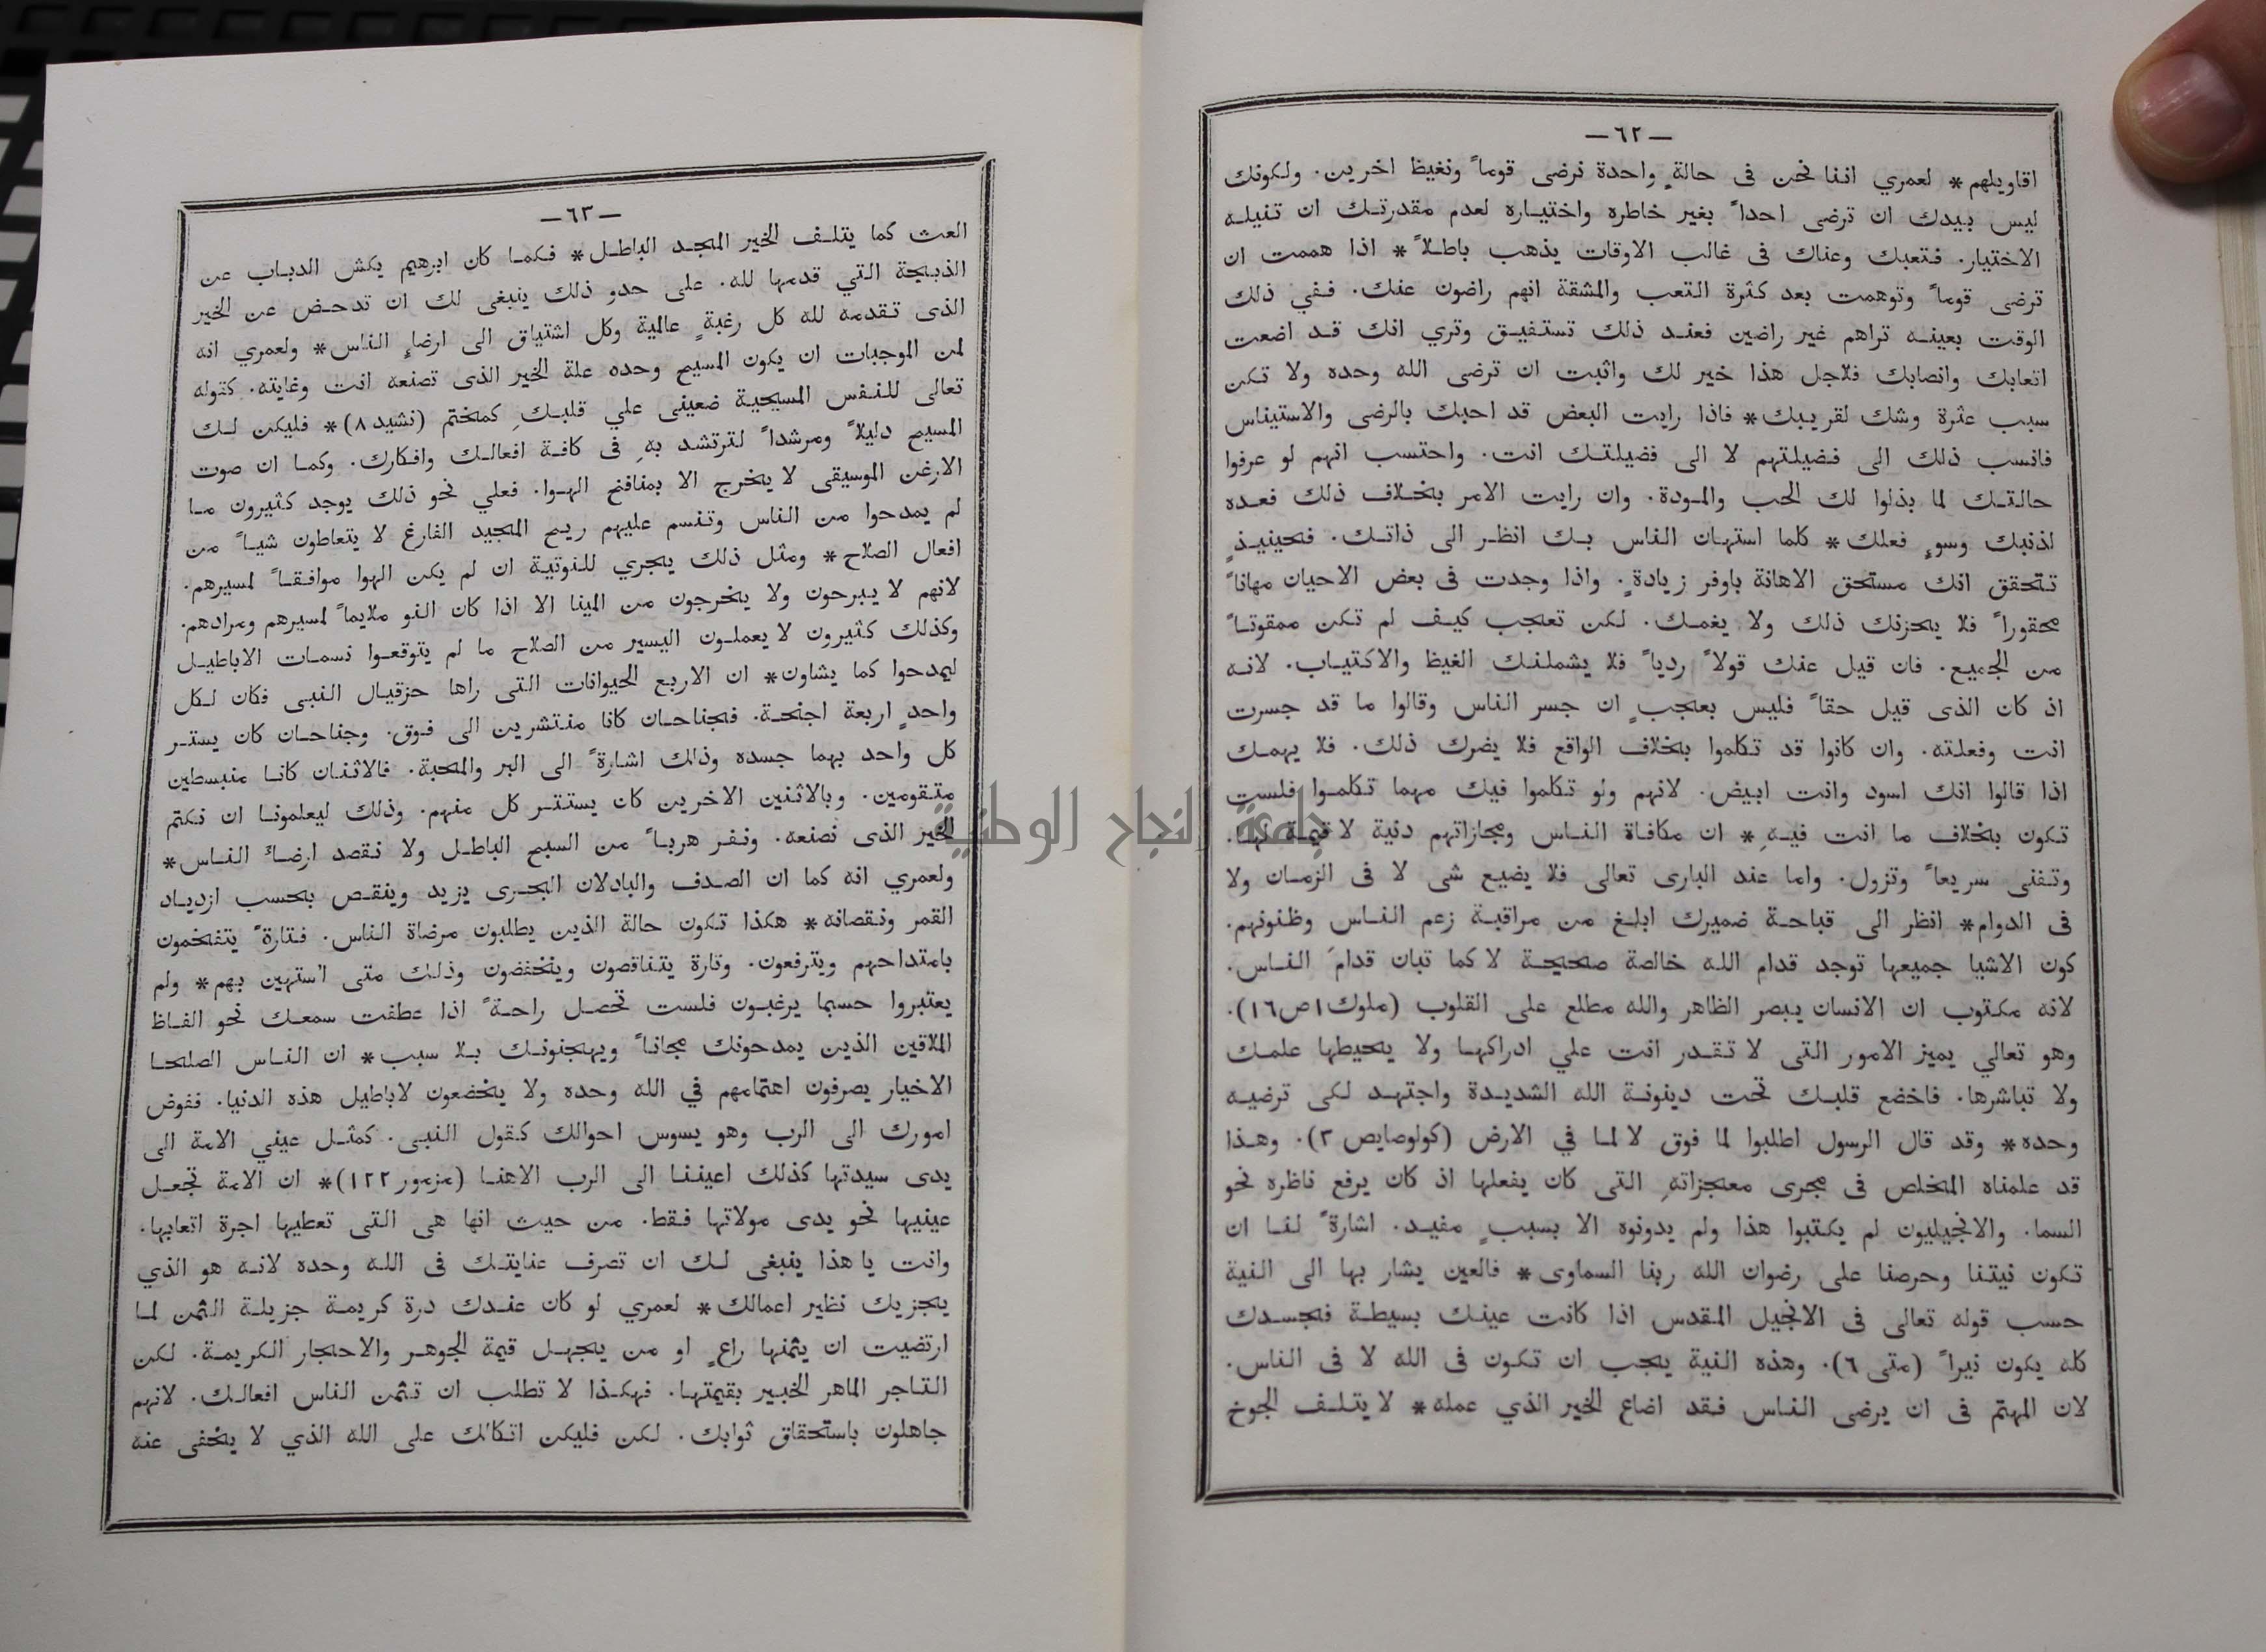 —٦٢—
اقاويلهم* لعمري اننا نحن فى حالةٍ واحدة نرضى قوماً ونغيظ اخرين. ولكونك
ليس بيدك ان ترضى احداً بغير خاطره واختياره لعدم مقدرتك ان تنيله
الاختيار. فتعبك وعناك فى غالب الاوقات يذهب باطلاً* اذا هممت ان
ترضى قوماً وتوهمت بعد كثرة التعب والمشقة انهم راضون عنك. ففي ذلك
الوقت بعينه تراهم غير راضين فعند ذلك تستفيق وتري انك قد اضعت
اتعابك وانصابك فلاجل هذا خير لك واثبت ان ترضى الله وحده ولا تكن
سبب عثرة وشك لقريبك* فاذا رايت البعض قد احبك بالرضى والاستيناس
فانسب ذلك الى فضيلتهم لا الى فضيلتك انت. واحتسب انهم لو عرفوا
حالتك لما بذلوا لك الحب والمودة. وان رايت الامر بخلاف ذلك فعده
لذنبك وسوءِ فعلك* كلما استهان الناس بك انظر الى ذاتك. فحينيذٍ
تتحقق انك مستحق الاهانة باوفر زيادةٍ. واذا وجدت فى بعض الاحيان مهاناً
محقوراً فلا يحزنك ذلك ولا يغمك. لكن تعجب كيف لم تكن ممقوتاً
من الجميع. فان قيل عنك قولاً ردياً فلا يشملنك الغيظ والاكتياب. لانه
اذ كان الذى قيل حقاً فليس بعجبٍ ان جسر الناس وقالوا ما قد جسرت
انت وفعلته. وان كانوا قد تكلموا بخلاف الواقع فلا يضرك ذلك. فلا يهمك
اذا قالوا انك اسود وانت ابيض. لانهم ولو تكلموا فيك مهما تكلموا فلست
تكون بخلاف ما انت فيهِ* ان مكافاة الناس ومجازاتهم دنية لا قيمة لها.
وتفنى سريعاً وتزول. واما عند البارى تعالى فلا يضيع شى لا فى الزمان ولا
فى الدوام* انظر الى قباحة ضميرك ابلغ من مراقبة زعم الناس وظنونهم.
كون الاشيا جميعها توجد قدام الله خالصة صحيحة لا كما تبان قدامَ الناس.
لانه مكتوب ان الانسان يبصر الظاهر والله مطلع على القلوب (ملوك١ص١٦).
وهو تعالي يميز الامور التى لا تقدر انت علي ادراكها ولا يحيطها علمك
ولا تباشرها. فاخضع قلبك تحت دينونة الله الشديدة واجتهد لكى ترضيه
وحده* وقد قال الرسول اطلبوا لما فوق لا لما في الارض (كولوصايص ٣). وهذا
قد علمناه المخلص فى مجرى معجزاتهِ التى كان يفعلها اذ كان يرفع ناظره نحو
السما. والانجيليون لم يكتبوا هذا ولم يدونوه الا بسببٍ مفيد. اشارةً لنا ان
تكون نيتنا وحرصنا على رضوان الله ربنا السماوى* فالعين يشار بها الى النية
حسب قوله تعالى فى الانجيل المقدس اذا كانت عينك بسيطة فجسدك
كله يكون نيراً (متى ٦). وهذه النية يجب ان تكون فى الله لا فى الناس.
لان المهتم فى ان يرضى الناس فقد اضاع الخير الذي عمله* لا يتلف الجوخ
—٦٣—
العث كما يتلف الخير المجد الباطل* فكما كان ابرهيم يكش الدباب عن
الذبيحة التي قدمها لله. على حدو ذلك ينبغى لك ان تدحض عن الخير
الذى تقدمه لله كل رغبةٍ عالمية وكل اشتياق الى ارضاءِ الناس* ولعمري انه
لمن الموجبات ان يكون المسيح وحده علة الخير الذى تصنعه انت وغايته. كقوله
تعالى للنفس المسيحية ضعينى علي قلبكِ كمختم (نشيد ٨)* فليكن لك
المسيح دليلاً ومرشداً لترتشد بهِ فى كافة افعالك وافكارك. وكما ان صوت
الارغن الموسيقى لا يخرج الا بمنافخ الهوا. فعلي نحو ذلك يوجد كثيرون ما
لم يمدحوا من الناس وتنسم عليهم ريح المجيد الفارغ لا يتعاطون شياً من
افعال الصلاح* ومثل ذلك يجري للنوتية ان لم يكن الهوا موافقاً لمسيرهم.
لانهم لا يبرحون ولا يخرجون من المينا الا اذا كان النو ملايماً لمسيرهم ومرادهم.
وكذلك كثيرون لا يعملون اليسير من الصلاح ما لم يتوقعوا نسمات الاباطيل
ليمدحوا كما يشاون* ان الاربع الحيوانات التى راها حزقيال النبى فكان لكل
واحدٍ اربعة اجنحة. فجناحان كانا منتشرين الى فوق. وجناحان كان يستر
كل واحد بهما جسده وذلك اشارةً الى البر والمحبة. فالاثنان كانا منبسطين
متقومين. وبالاثنين الاخرين كان يستتر كل منهم. وذلك ليعلمونا ان نكتم
الخير الذى نصنعه. ونفر هرباً من السبح الباطل ولا نقصد ارضاءَ الناس*
ولعمري انه كما ان الصدف والبادلان البحرى يزيد وينقص بحسب ازدياد
القمر ونقصانه* هكذا تكون حالة الذين يطلبون مرضاة الناس. فتارةً يتفخمون
بامتداحهم ويترفعون. وتارة يتناقصون وينخفضون وذلك متى استهين بهم* ولم
يعتبروا حسبما يرغبون فلست تحصل راحةً اذا عطفت سمعك نحو الفاظ
الملاقين الذين يمدحونك مجاناً ويهجنونك بلا سبب* ان الناس الصلحا
الاخيار يصرفون اهتمامهم في الله وحده ولا يخضعون لاباطيل هذه الدنيا. ففوض
امورك الى الرب وهو يسوس احوالك كقول النبى. كمثل عيني الامة الى
يدى سيدتها كذلك اعيننا الى الرب الاهنا (مزمور ١٢٢)* ان الامة تجعل
عينيها نحو يدى مولاتها فقط. من حيث انها هى التى تعطيها اجرة اتعابها.
وانت يا هذا ينبغى لك ان تصرف عنايتك فى الله وحده لانه هو الذي
يجزيك نظير اعمالك* لعمري لو كان عندك درة كريمة جزيلة الثمن لما
ارتضيت ان يثمنها راعٍ او من يجهل قيمة الجوهر والاحجار الكريمة. لكن
التاجر الماهر الخبير بقيمتها. فهكذا لا تطلب ان تثمن الناس افعالك. لانهم
جاهلون باستحقاق ثوابك. لكن فليكن اتكالك على الله الذي لا يخفى عنه
جامعة النجاح الوطنية